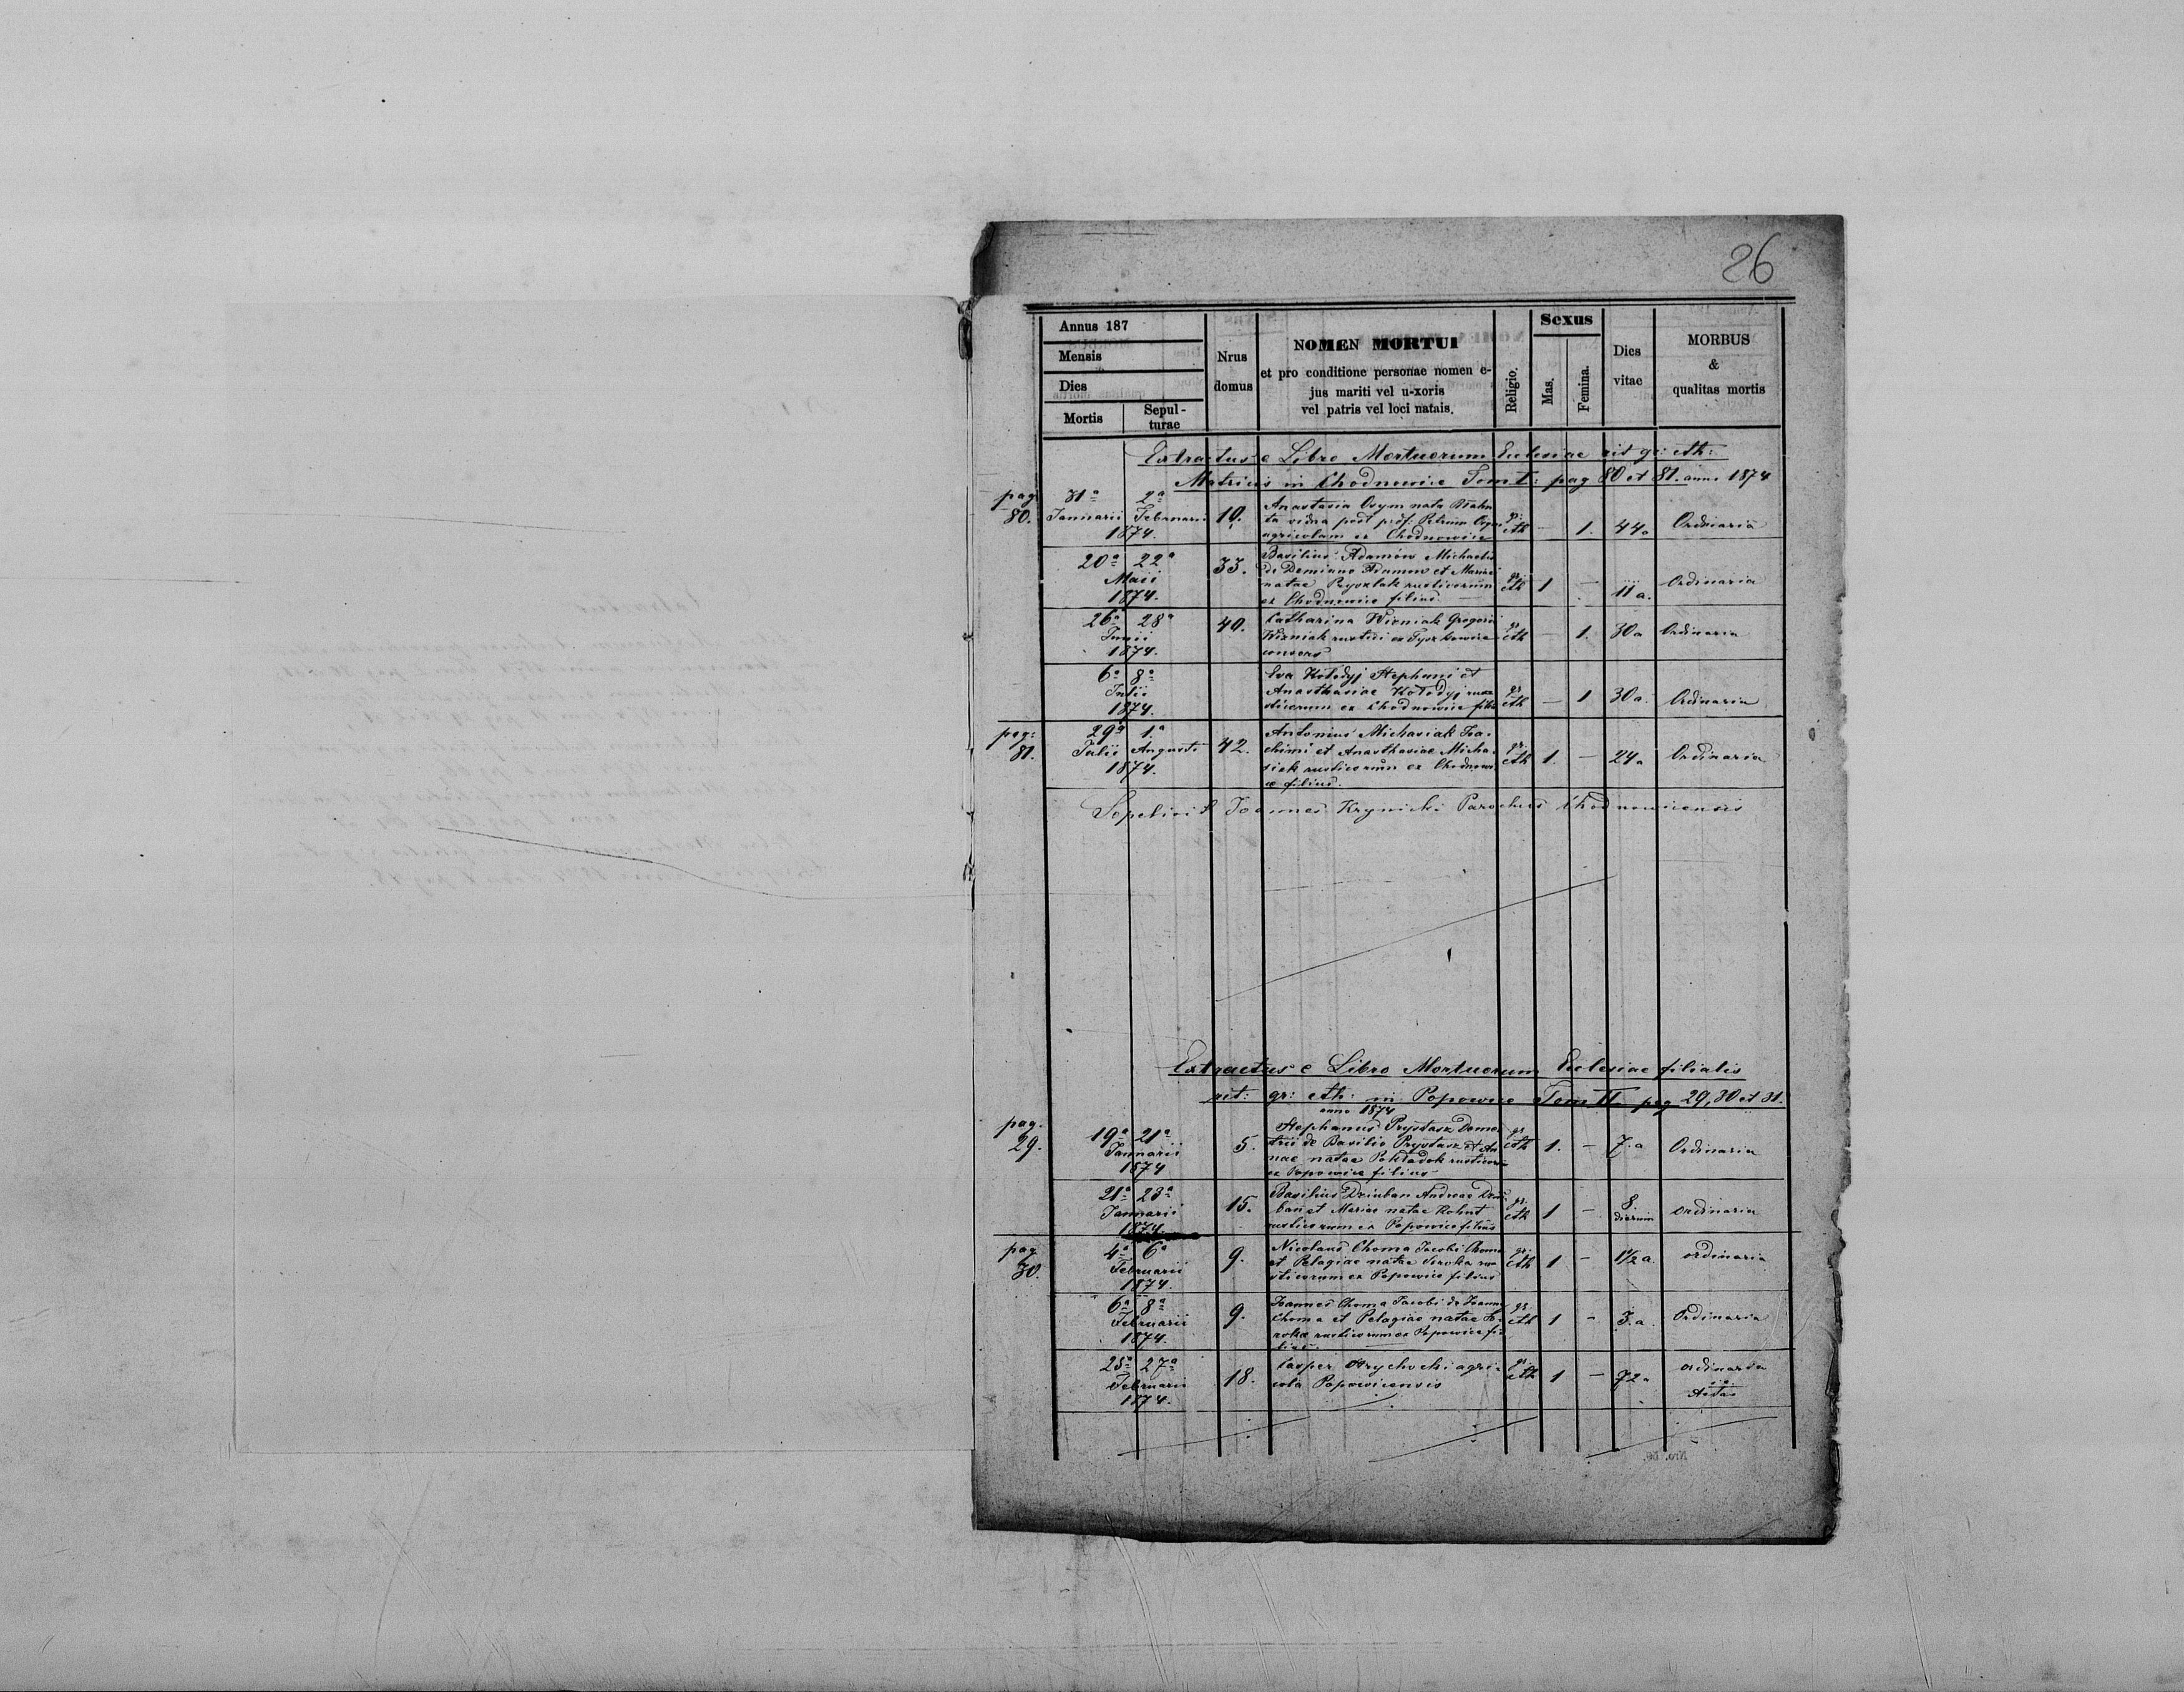 26
Annus 187
Mensis
Dies
Mortis
Sepul-
turae
Nrus
domus
NOMEN MORTUI
et pro conditione personae nomen e-
jus mariti vel u-xoris
vel patris vel loci natais.
Religio.
Sexus
Mas.
Femina.
Dies
vitae
MORBUS
&
qualitas mortis
Extractus e Libro Mortuorum Eclesiae rit gr: cth:
Matricis in Chodnowice Tom I: pag 80 et 81. anno 1874
pag
80.
31a 2a
Januarii Februarii
1874.
10.
Anastasia Osym nata
vidua post Petrum
agricolam ex Chodnowice
gr:
cth — 1. 44a Ordinaria
20a 22a
Maii
1874.
33.
Basilius Adamów Michaelis
de Demiano Adamow et Mariae
natae rusticorum
ex Chodnowice filius
gr:
cth 1 — 11 a. Ordinaria
26a 28a
Junii
1874.
40.
Catharina Wizniak Gregorii
Wizniak rustici ex Tyszkowice
consors
gr:
cth — 1. 30a Ordinaria
6a 8a
Julii
1874.
Eva Kołodyj Stephani et
Anasthasiae Kołodyj rus
ticorum ex Chodnowice filia
gr
cth — 1 30a. Ordinaria
pag:
81.
29a 1a
Julii Augusti
1874.
42.
Antonius Michasiak Joa-
chimi et Anasthasiae Micha-
siak rusticorum ex Chodnowi
ce filius.
gr:
cth 1. — 24a Ordinaria
Sepelivit Joannes Krynicki Parochus Chodnowicensis
Extractus e Libro Mortuorum Eclesiae filialis
rit: gr: cth: in Popowice Tom II. pag 29, 30 et 31.
anno 1874
pag.
29.
19a 21a
Januarii
1874
5.
Stephanus Prystasz Deme
trii de Basilio Prystasz et An
nae natae Pokładok rusticor
ex Popowice filius
gr
cth 1. — 7.a Ordinaria
21a 23a
Januarii
1874
15.
Basilius Dziuban Andreae Dziu
ban et Mariae natae Kohut
rusticorum ex Popowice filius
gr.
cth 1 — 8.
dierum
ordinaria
pag
30.
4a 6a
Februarii
1874.
9.
Nicolaus Choma Jacobi Choma
et Pelagiae natae Siroka ru
sticorum ex Popowice filius
gr:
cth 1 — 1 1/2 a. ordinaria
6a 8a
Februarii
1874.
9.
Joannes Choma Jacobi de Joanne
Choma et Pelagiae natae Si
roka rusticorum ex Popowice fi
lius.
gr.
cth 1 — 3.a. Ordinaria
25a 27a
Februarii
1874.
18.
Casper Strychocki agri-
cola Popowicensis
gr:
cth 1 — 72a ordinaria
Aetas